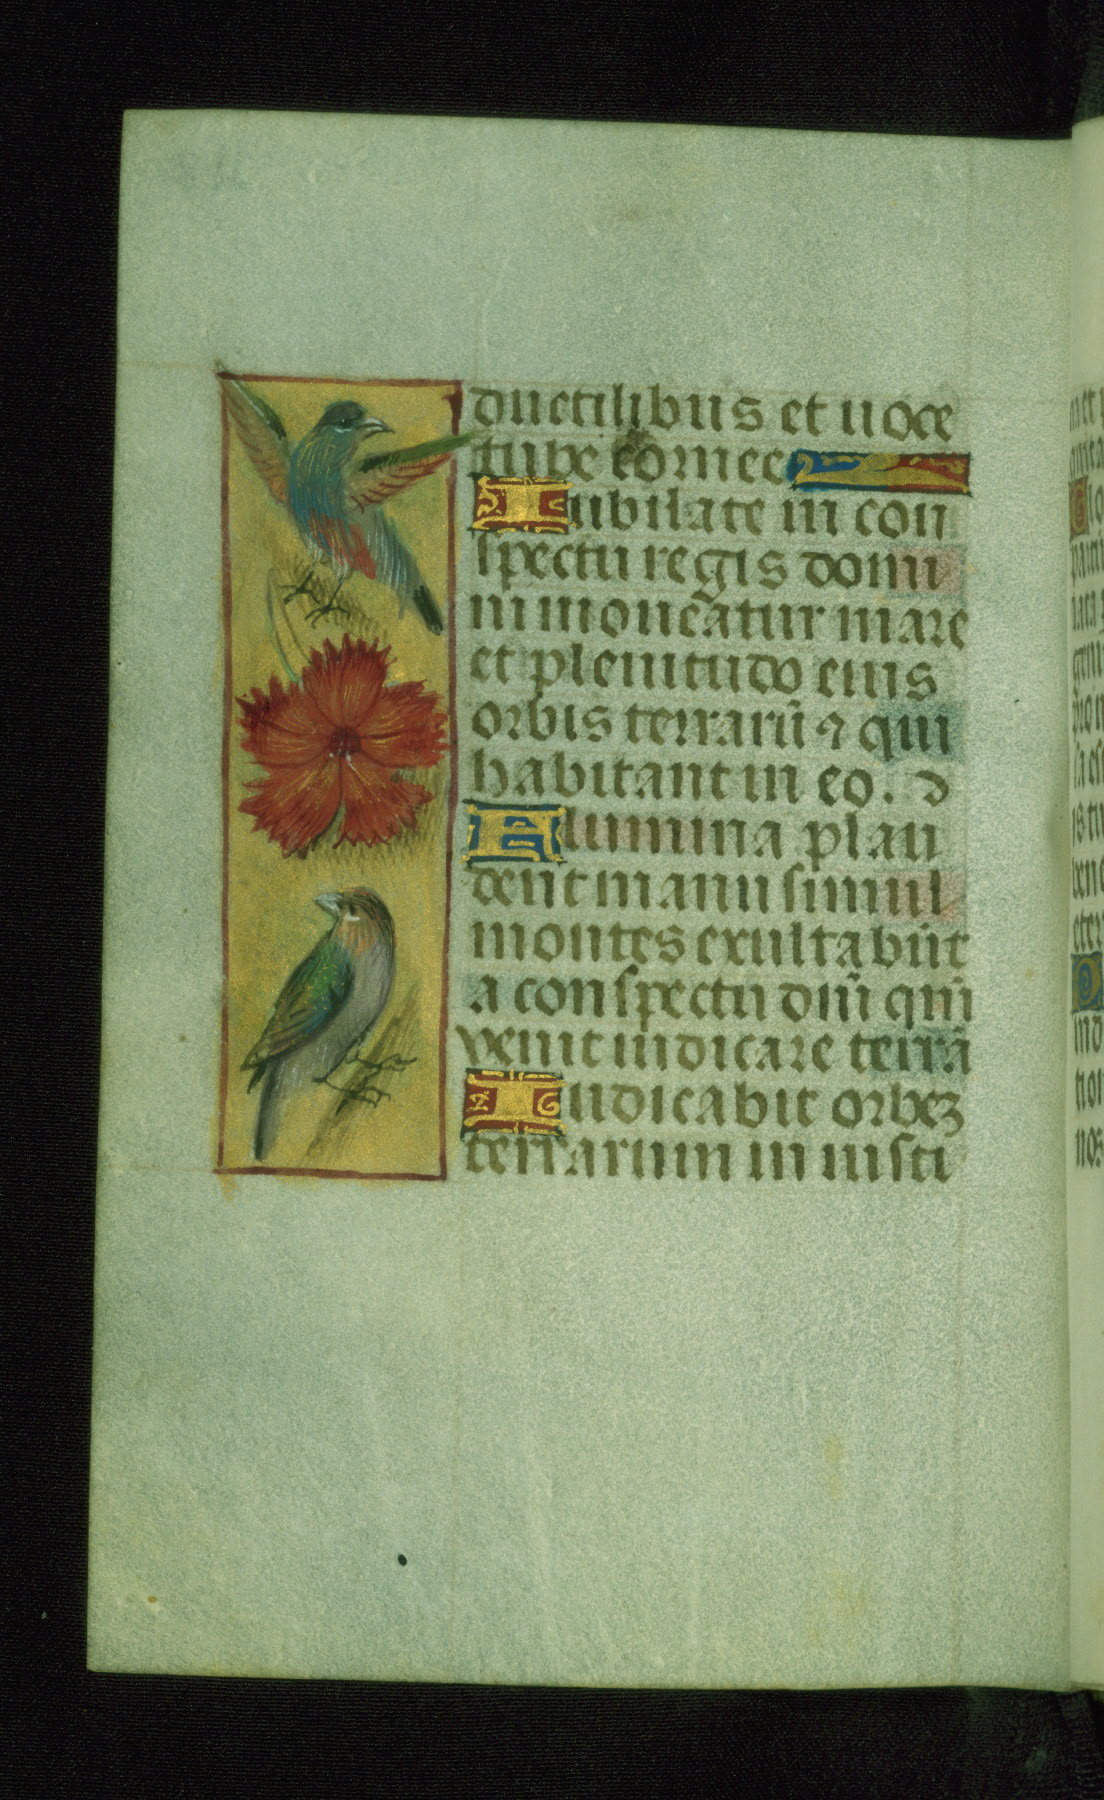 ductilibus et uoce
tube cornee
Iubilate in con
spectu regis domi
ni moueatur mare
et plenitudo eius
orbis terrarū ⁊ qui
habitant in eo. d
Flumina plau
dent manu simul
montes exultabūt
a conspectu dm̄ qm̄
venit iudicare terrā
Iudicabit orbeꝫ
terrarum in iusti